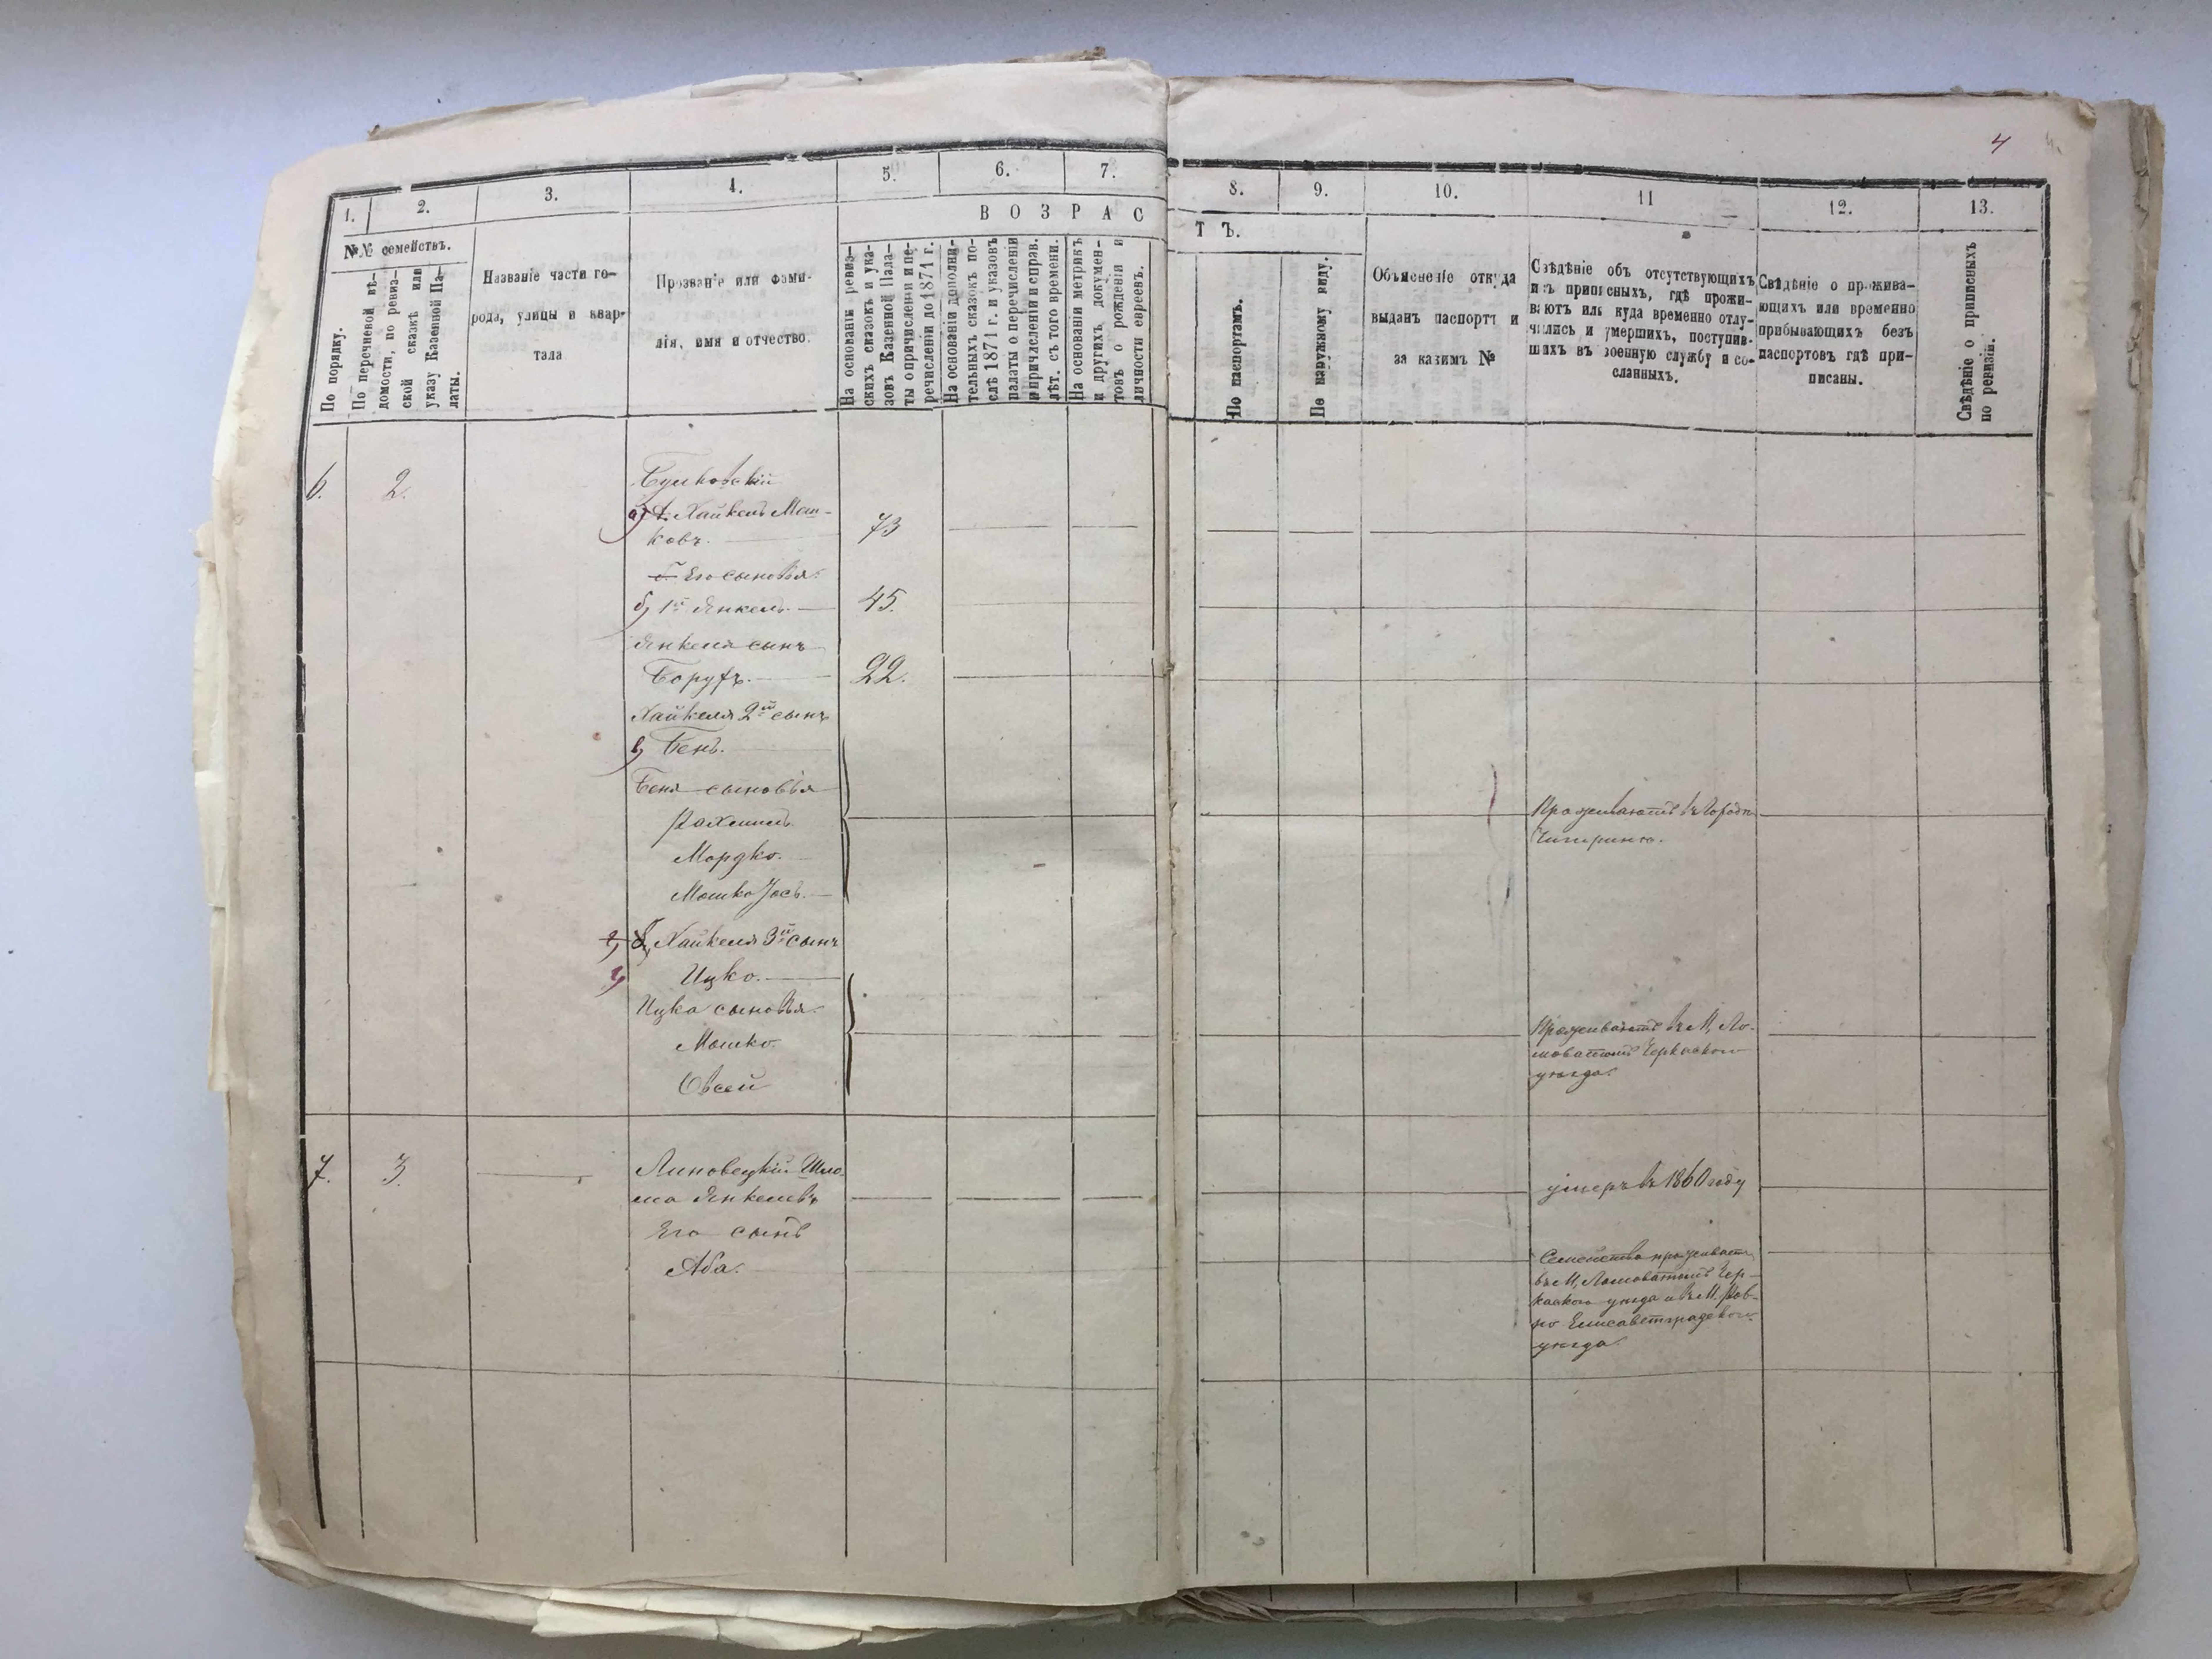 4
1.
2.
3.
4.
5.
6.
7.
8.
9.
10.
11
12.
13.
№№ семействъ.
По порядку.
По перечневой вѣ-
домости, по ревиз-
ской сказкѣ или
указу Казенной Па-
латы.
Названіе части го-
рода, улицы и квар-
тала
Прозваніе или фами-
лія, имя и отчество.
ВОЗРАС
ТЪ.
На основаніи ревиз-
скихъ сказокъ и ука-
зовъ Казенной Пала-
ты о причисленіи и пе-
речисленіи до 1871 г.
На основаніи дополни-
тельныхъ сказокъ по-
слѣ 1871 г. и указовъ
палаты о перечисленіи
и причисленіи и справ.
лѣт. съ того времени.
На основаніи метрикъ
и другихъ докумен-
товъ о рожденіи и
личности евреевъ.
По паспортамъ.
По наружному виду.
Объясненіе откуда
выданъ паспортъ и
за какимъ №
Свѣдѣніе объ отсутствующихъ
изъ приписныхъ, гдѣ прожи-
ваютъ или куда временно отлу-
чились и умершихъ, поступив-
шихъ въ военную службу и со-
сланныхъ.
Свѣдѣніе о прожива-
ющихъ или временно
прибывающихъ безъ
паспортовъ гдѣ при-
писаны.
Свѣдѣніе о приписныхъ
по ревизіи.
6.
2.
а) Хайкель Мош-
ковъ.
73
Его сыновья:
б, 1й Янкель
45.
Янкеля сынъ
Борухъ.
22.
Хайкеля 2й сынъ
в, Бень.
Беня сыновья
Рахмиль.
Мордко.
Мошко Іось.
Проживаютъ въ городѣ
Чигиринѣ.
Хайкеля 3й сынъ
г, Ицко.
Ицка сыновья.
Мошко.
Овсей
Проживаютъ въ М, Ло-
моватомъ Черкаскаго
уѣзда.
7.
3.
Липовецкій Шлё-
ма Янкелевъ
умеръ въ 1860 году
Его сынъ
Аба.
Семейство проживаетъ
въ М, Ломоватомъ Чер-
каскаго уѣзда и въ М. Ров-
но Елисаветградскаго
уѣзда.